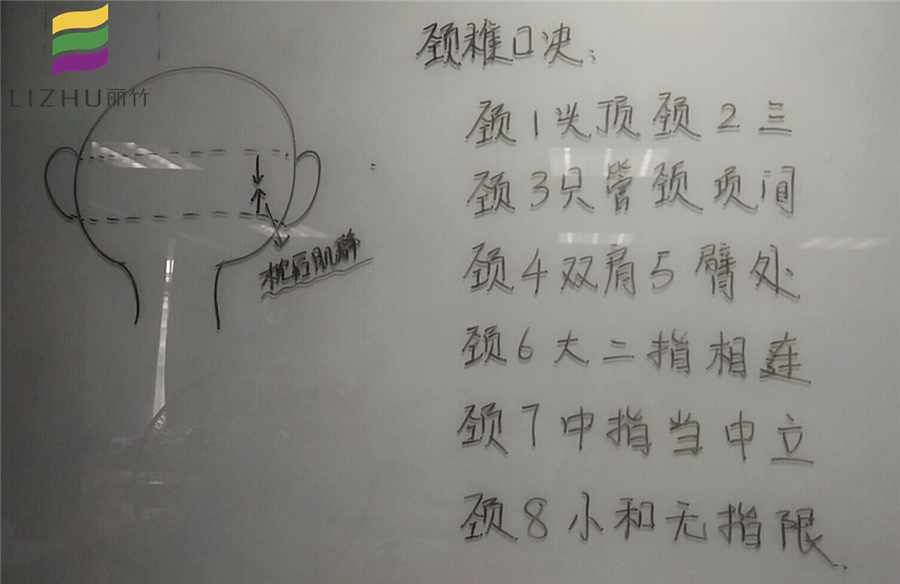 LIZHU丽竹
颈椎口决:
颈1头顶颈2三
颈3只管颈项间
颈4双肩5臂处
颈6大二指相连
颈7中指当中立
颈8小和无指限
枕后肌群